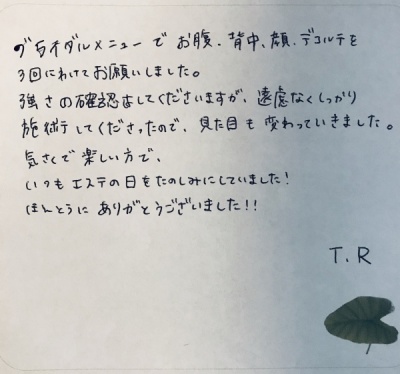 ブライダルメニューで お腹、背中、顔、デコルテを
3回にわけてお願いしました。
強さの確認はしてくださいますが、遠慮なくしっかり
施術してくださったので、見た目も変わっていきました。
気さくで楽しい方で、
いつもエステの日をたのしみにしていました!
ほんとうに ありがとうございました!!
T.R